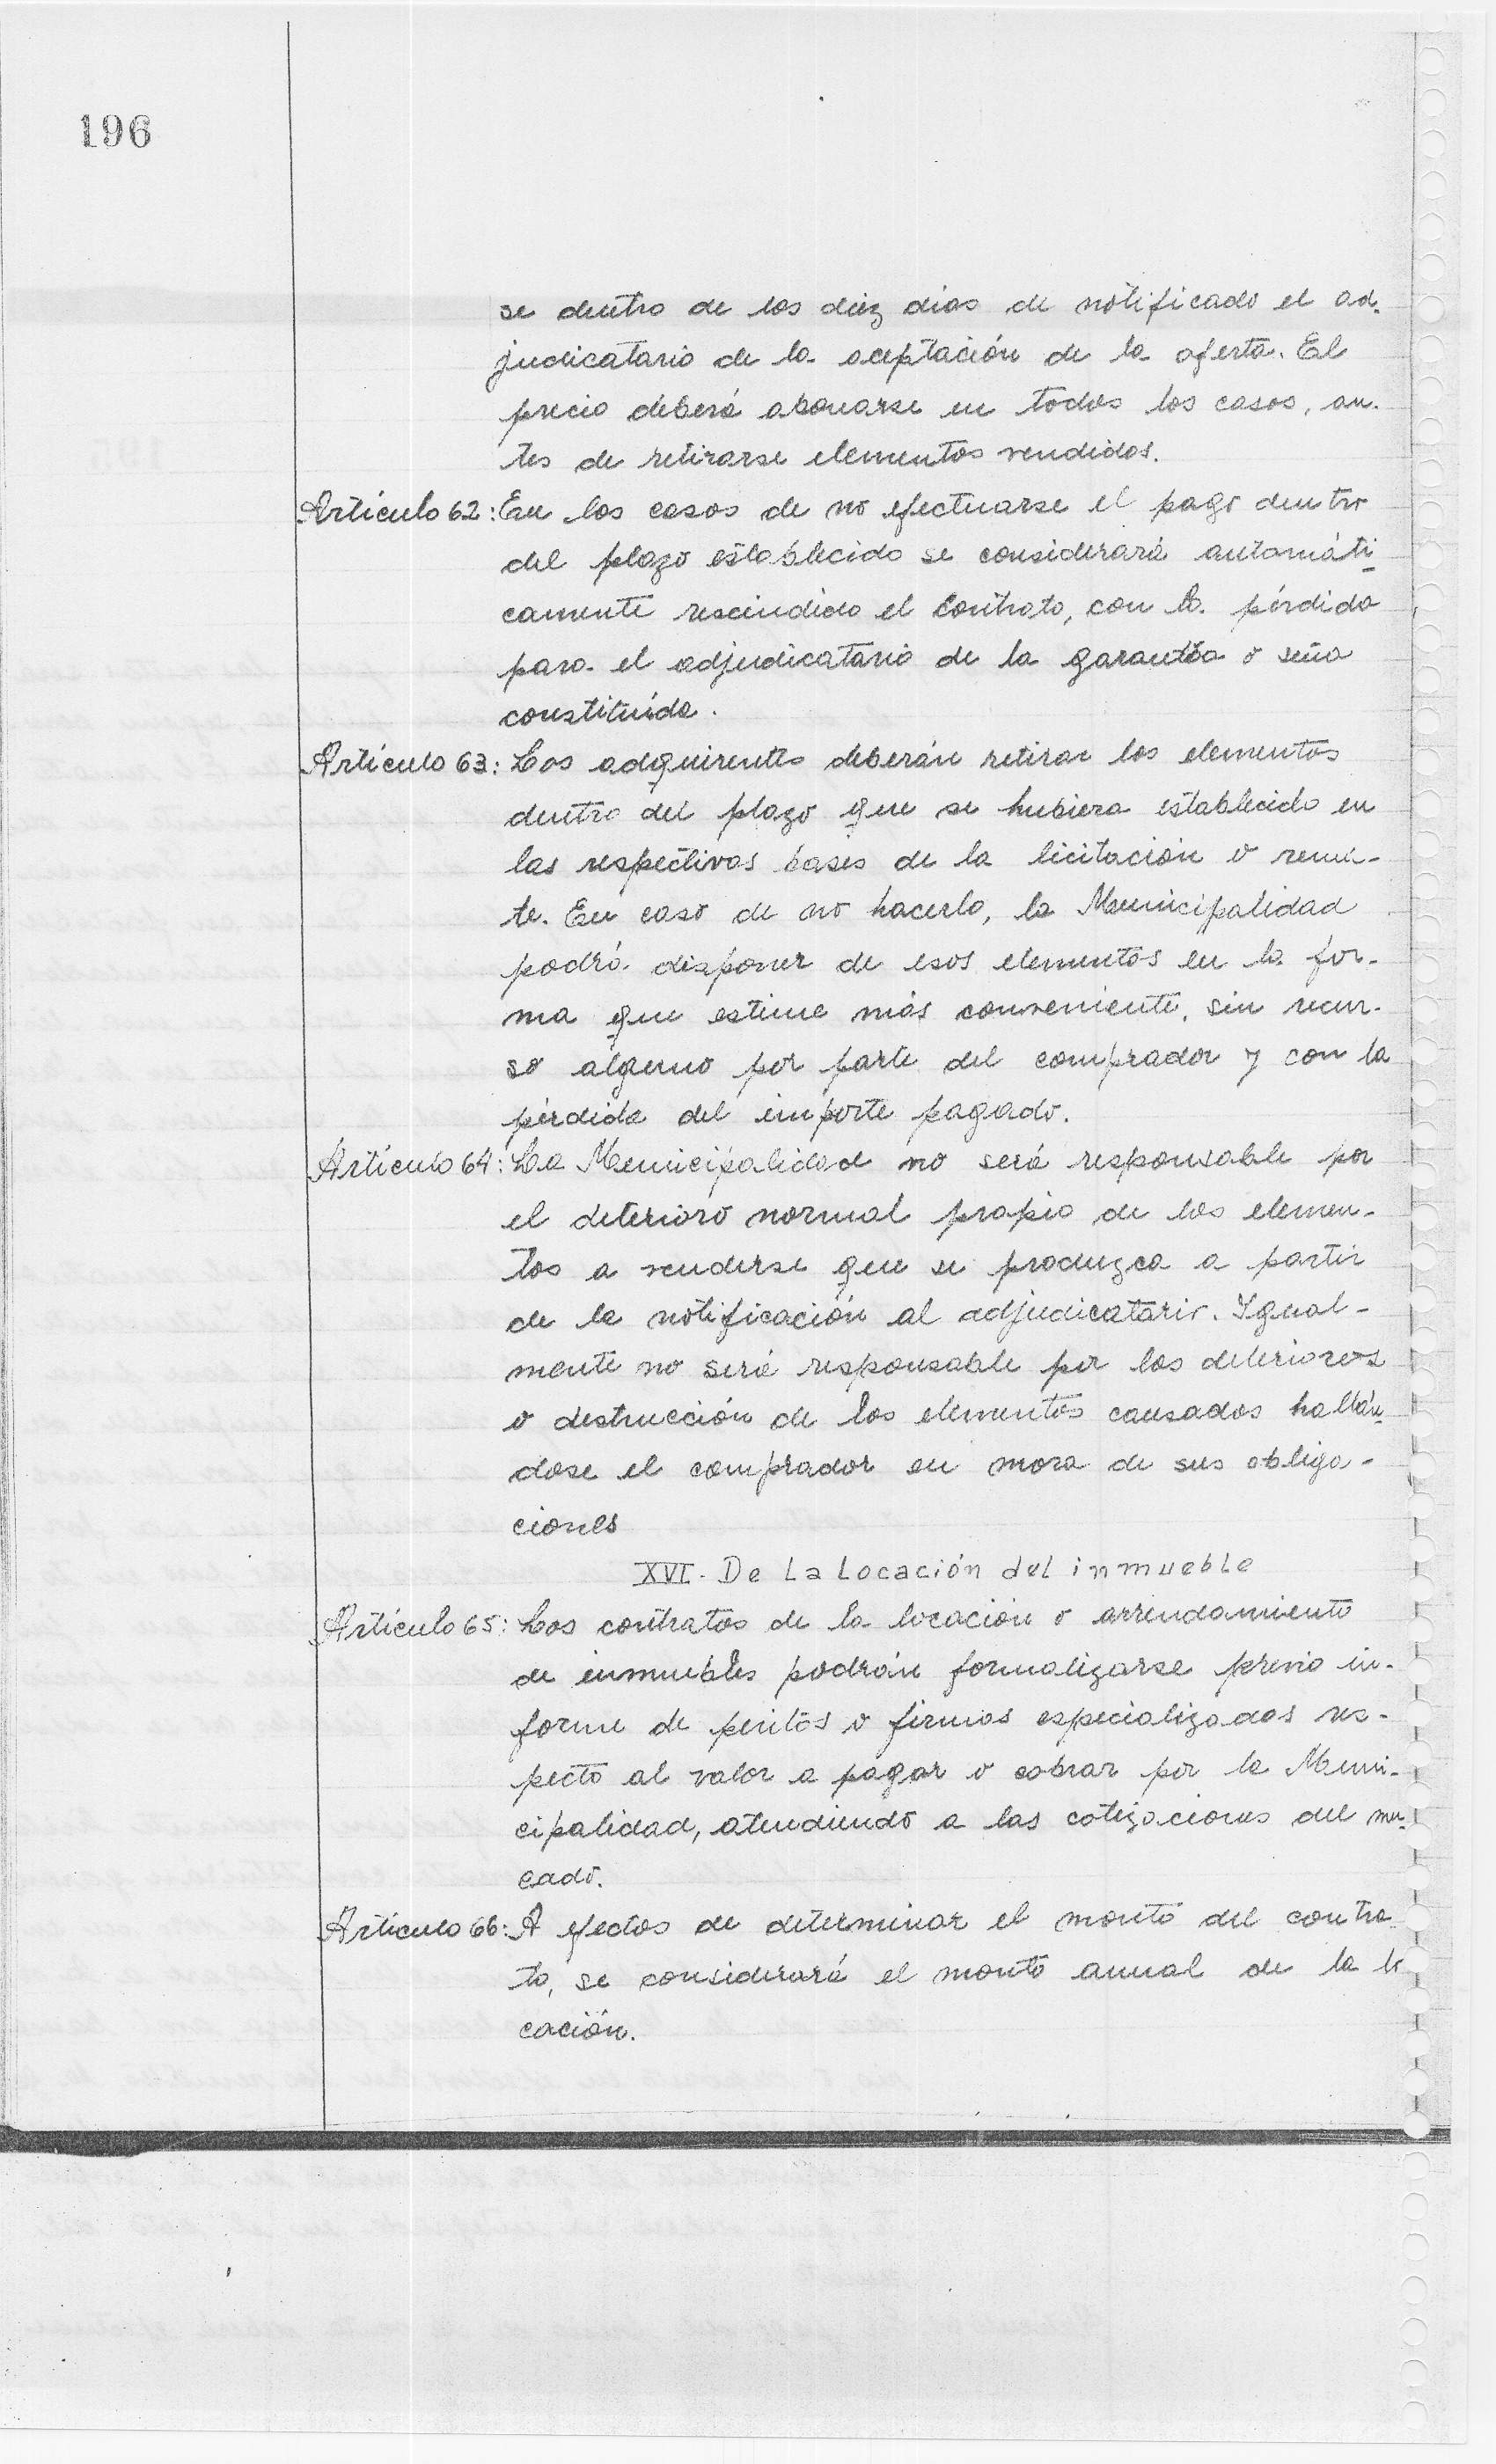 196
se dentro de los diez dias de notificado el ad-
judicatario de la aceptación de la oferta. El
precio deberá abonarse en todos los casos, an-
tes de retirarse elementos vendidos.
Artículo 62: En los casos de no efectuarse el pago dentro
del plazo establecido se considerará automáti-
camente rescindido el contrato, con la pérdida
para el adjudicatario de la garantía o seña
constituída.
Artículo 63: Los adquirentes deberán retirar los elementos
dentro del plazo que se hubiera establecido en
las respectivas bases de la licitación o rema-
te. En caso de no hacerlo, la Municipalidad
podrá disponer de esos elementos en la for-
ma que estime más conveniente, sin recur-
so alguno por parte del comprador y con la
pérdida del importe pagado.
Artículo 64: La Municipalidad no será responsable por
el deterioro normal propio de los elemen-
tos a venderse que se produzca a partir
de la notificación al adjudicatario. Igual-
mente no será responsable por los deterioros
o destrucción de los elementos causados hallán-
dose el comprador en mora de sus obliga-
ciones
XVI- De La Locación del inmueble
Artículo 65: Los contratos de la locación o arrendamiento
de inmuebles podrán formalizarse previo in-
forme de peritos o firmas especializadas res-
pecto al valor a pagar o cobrar por la Muni-
cipalidad, atendiendo a las cotizaciones del mer-
cado.
Artículo 66: A efectos de determinar el monto del contra-
to, se considerará el monto anual de la lo
cación.